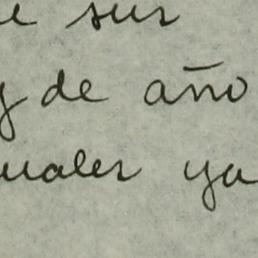 e sur
y de año
uales ya